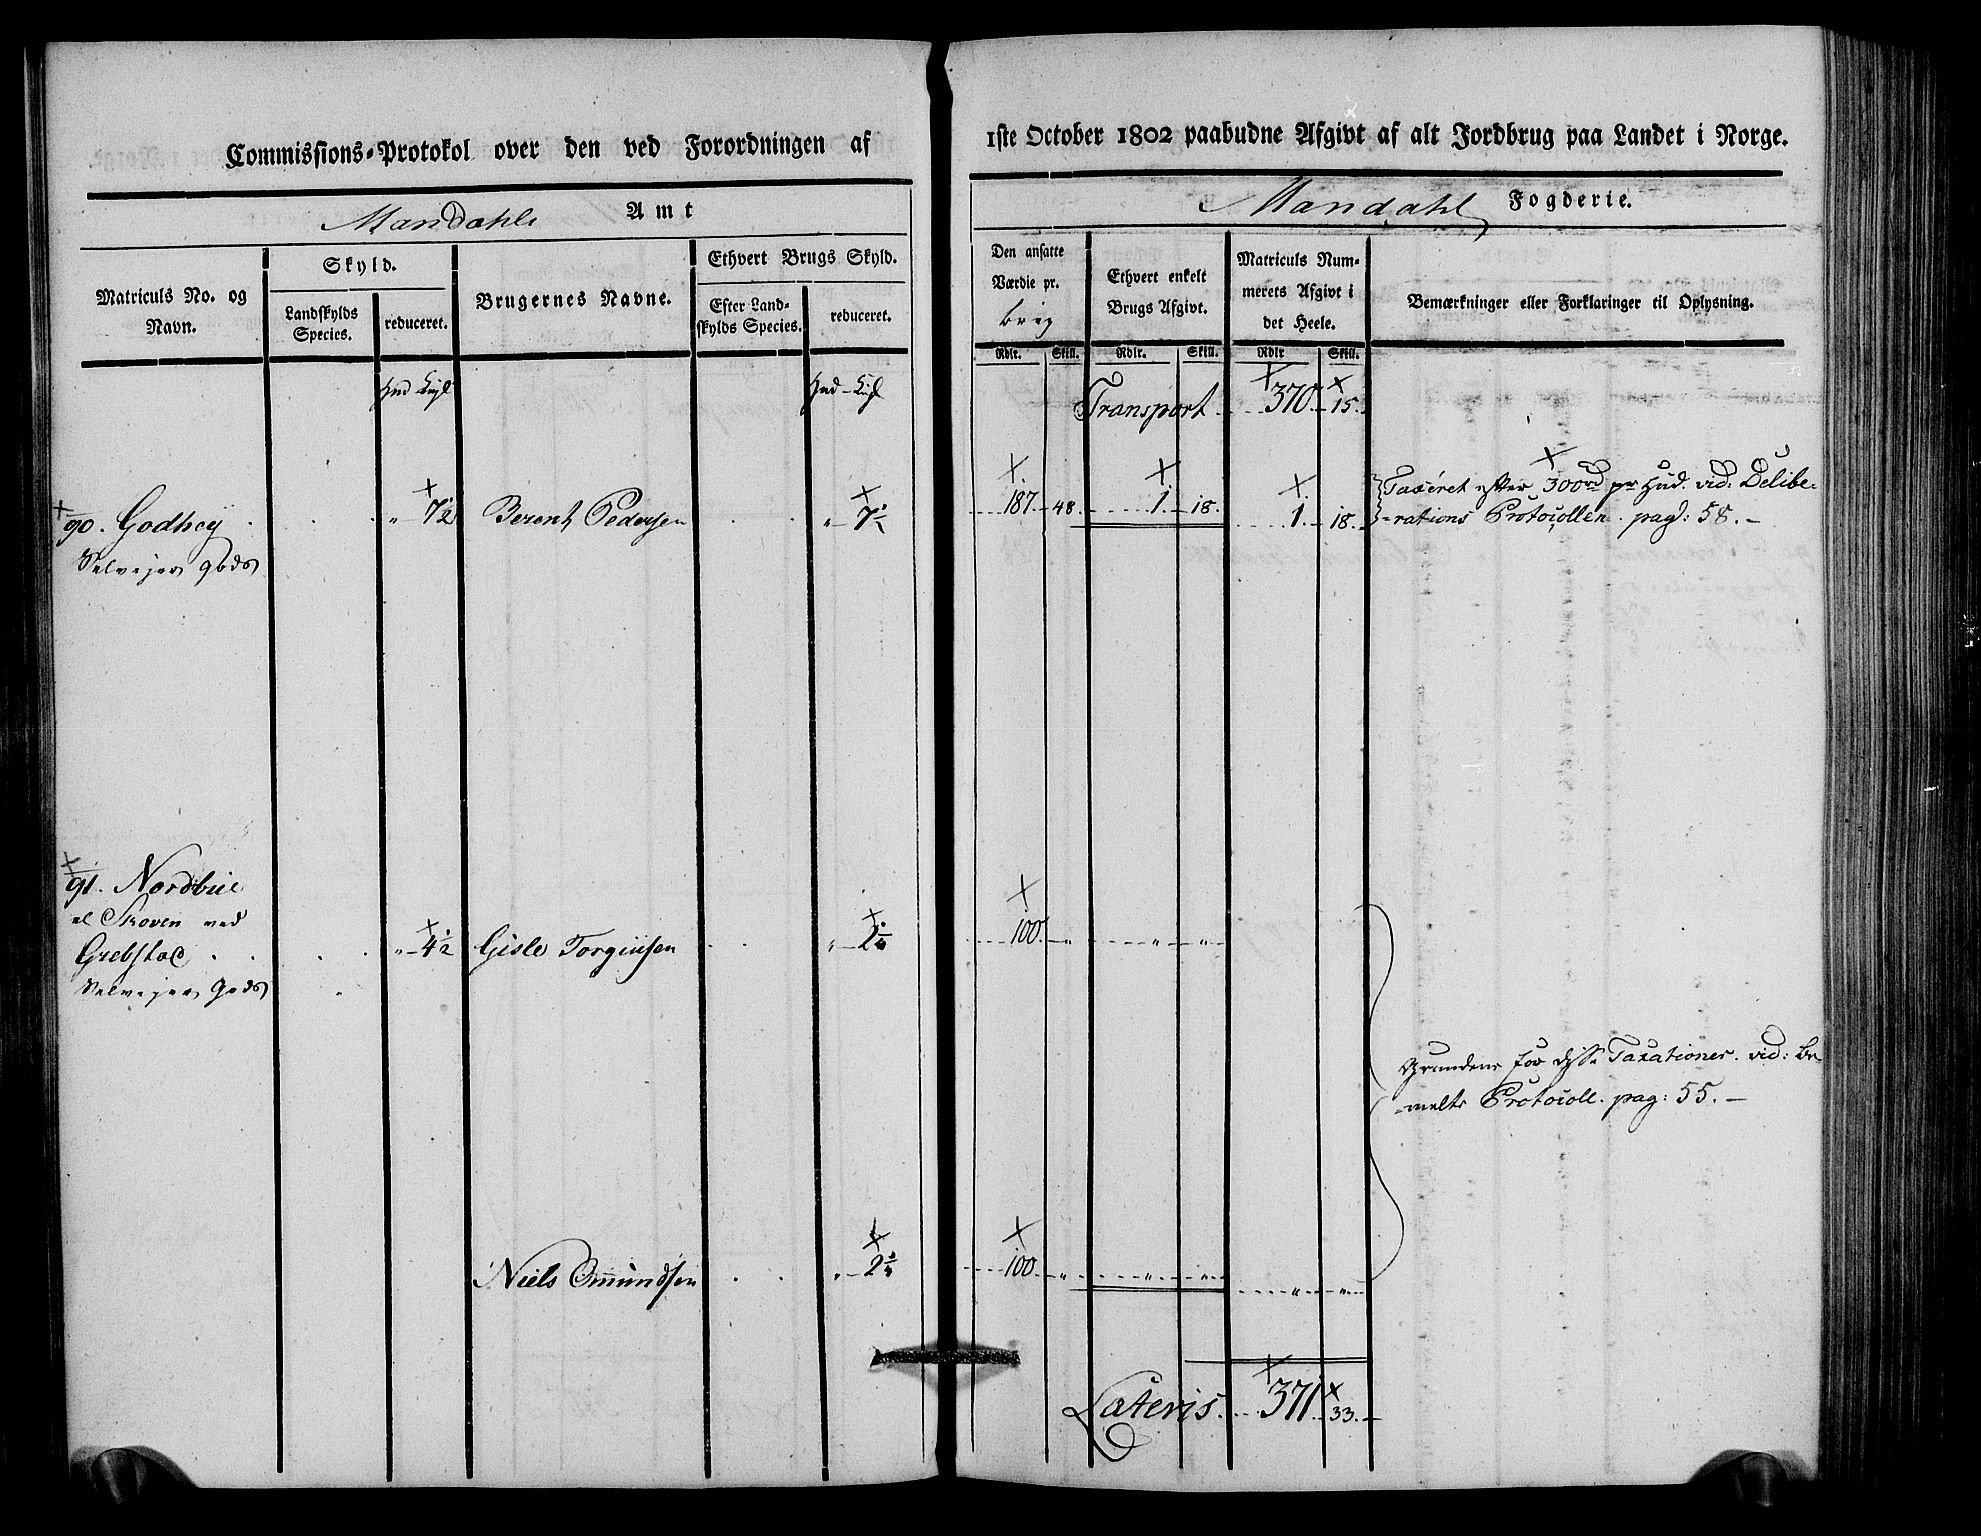 Commissions-Protokol over den ved Forordningen af
Mandahls Amt
Matriculs No. og Navn.
Skyld.
Landskylds Species.
reduceret.
Brugernes Navne.
Ethvert Brugs Skyld.
Efter Land-
skylds Species.
reduceret.
90. Godhey " 7½ Berent Pedersen " 7½
Selvejer gods
91. Nordbüe
el Skoven ved
Grebstad " 4½ Gisle Torgiusen " 2¼
Selvejer Gods
Niels Omundsen " 2¼
1ste October 1802 paabudne Afgivt af alt Jordbrug paa Landet i Norge.
Mandahl Fogderie.
Den ansatte
Værdie pr.
brug
Ethvert enkelt
Brugs Afgivt.
Matriculs Num-
merets Afgivt i
det Heele.
Bemærkninger eller Forklaringer til Oplysning.
Rdlr. Skill. Rdlr. Skill. Rdlr Skill.
Transport 370 15.
187 48 1. 18. 1. 18. Taxeret efter 300rd pr Hud. vid: Delibe-
-rations Protocollen. pag: 58.
100. " " "
Grundene for disse Taxationer. vid: be
-melte Protocoll. pag: 55.
100 " " " " "
Lateris 371 33.